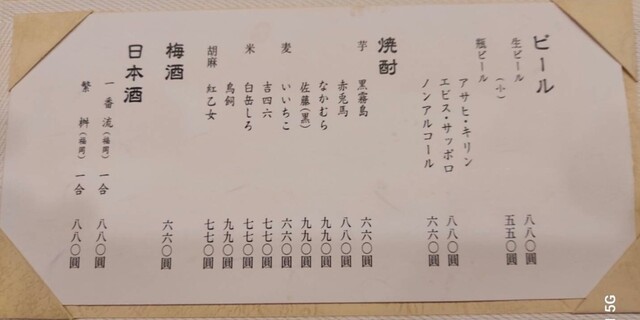 ビール
生ビール 八八〇圓
(小) 五五〇圓
瓶ビール
アサヒ・キリン
エビス・サッポロ 八八〇圓
ノンアルコール 六六〇圓
焼酎
芋 黒霧島 六六〇圓
赤兎馬 八八〇圓
なかむら 九九〇圓
佐藤(黒) 九九〇圓
麦 いいちこ 六六〇圓
吉四六 七七〇圓
米 白岳しろ 七七〇圓
鳥飼 九九〇圓
胡麻 紅乙女 七七〇圓
梅酒 六六〇圓
日本酒
一番流(福岡) 一合 八八〇圓
繁桝(福岡) 一合 八八〇圓
5G